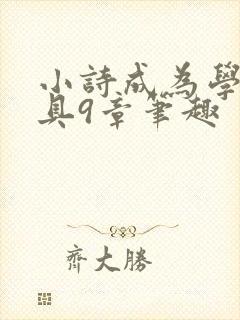 小詩成為學
具9章筆趣
齊大勝